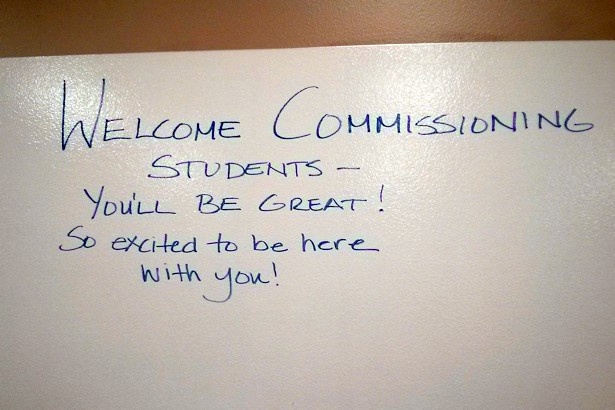 WELCOME COMMISSIONING
STUDENTS —
YOU'LL BE GREAT!
So excited to be here
with you!